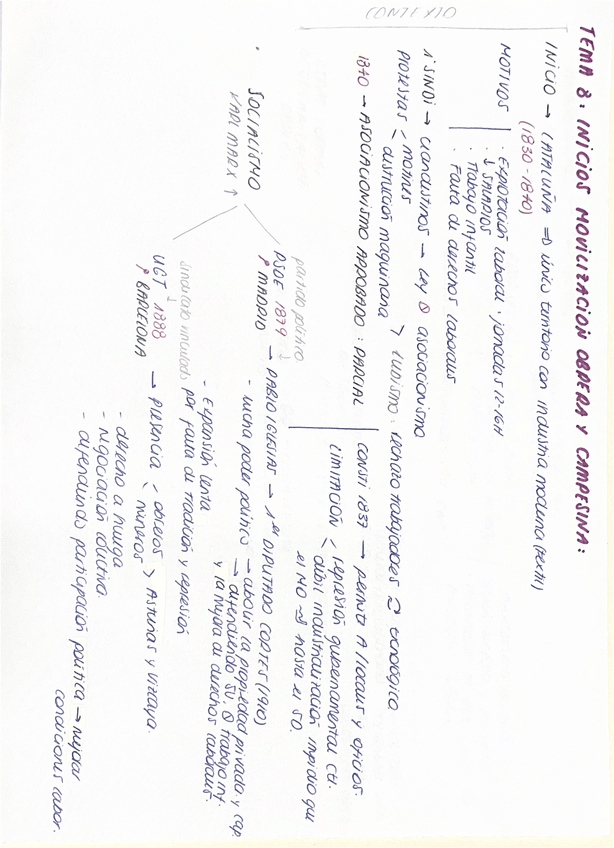 TEMA 8: INICIOS MOVILIZACION OBRERA Y CAMPESINA:
CONTEXTO
INICIO → CATALUÑA ⇒ único territorio con industria moderna (textil)
(1830-1840)
MOTIVOS
· Explotación laboral, jornadas 12-16H
· ↓ SALARIOS
· Trabajo infantil
· Falta de derechos laborales
1º SINDI → clandestinos → Ley Ø asociacionismo
PROTESTAS < motines
distrucción maquinaria > ludismo: rechazo trabajadores ⇄ tecnológico
1840 → ASOCIACIONISMO APROBADO: PARCIAL
CONSTI 1837 → permite A locales y oficios.
LIMITACIÓN < represión gubernamental cte.
débil industrialización impidió que
el MO → hasta el SO.
SOCIALISMO
KARL MARX ↑
partido político
↓
PSOE 1879 → PABLO IGLESIAS → 1er DIPUTADO CORTES (1910)
↑ MADRID
- lucha poder político → abolir la propiedad privada y cap.
→ defendiendo SU, Ø trabajo inf.
y la mejora de derechos laborales.
- Expansión lenta
por falta de tradición y represión
sindicato vinculado
↓
UGT 1888 → presencia < obreros
mineros > Asturias y Vizcaya.
↑ BARCELONA
- derecho a huelga
- negociación colectiva.
- defendiendo participación política → mejorar
condiciones labor.